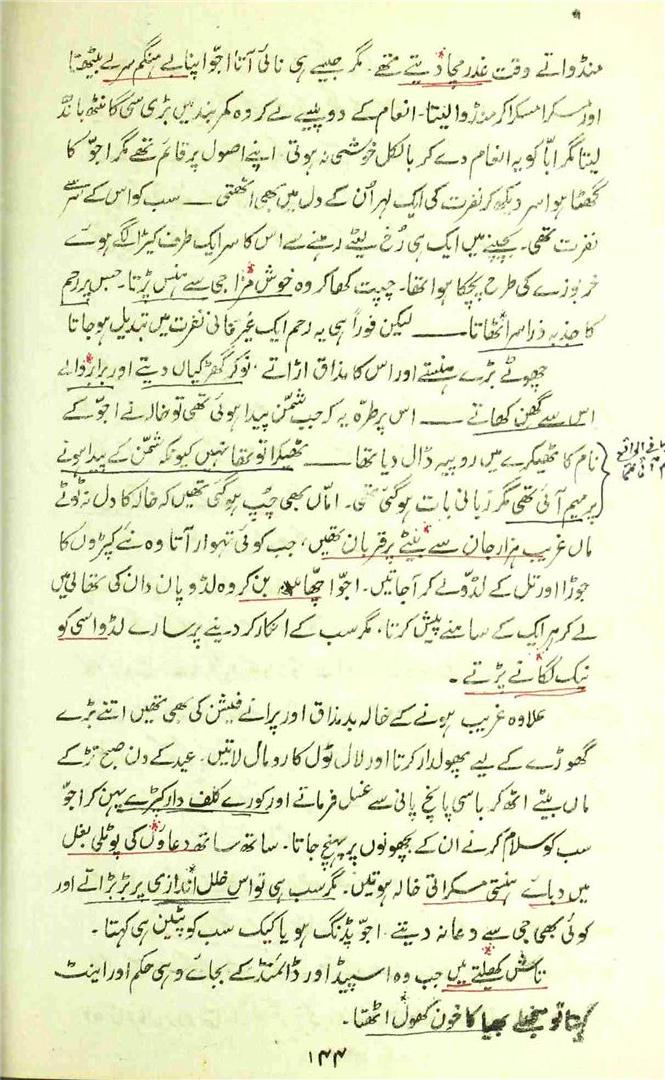 منڈواتے وقت غدر مچا دیتے تھے۔ مگر جیسے ہی نائی آتا اجّو اپنا بے ہنگم سر لے بیٹھتا
اور مسکرا مسکرا کر مونڈوا لیتا۔ انعام کے دو پیسے لے کر وہ کمر بند میں بڑی سی گانٹھ باندھ
لیتا مگر ابّا کو یہ انعام دے کر بالکل خوشی نہ ہوتی۔ اپنے اصول پر قائم تھے مگر اجّو کا
گھٹا ہوا سر دیکھ کر نفرت کی ایک لہر اُن کے دل میں بھی اٹھتی ــــ سب کو اس کے سر سے
نفرت تھی۔ بچپنے میں ایک ہی رُخ لیٹے رہنے سے اس کا سر ایک طرف کیڑا لگے ہوئے
خربوزے کی طرح پچکا ہوا تھا۔ چپت کھا کر وہ خوش مزاجی سے ہنس پڑتا۔ جس پر رحم
کا جذبہ ذرا سر اٹھاتا ــــ لیکن فوراً ہی یہ رحم ایک غیر فانی نفرت میں تبدیل ہو جاتا
چھوٹے بڑے ہنستے اور اس کا مذاق اڑاتے۔ نوکر گھڑکیاں دیتے اور برابر والے
اس سے گھن کھاتے ــــ اس پر طرہ یہ کہ جب شمّن پیدا ہوئی تھی تو خالہ نے اجّو کے
نام کا ٹھیکرے میں روپیہ ڈال دیا تھا ــــ ٹھیکرا تو تھا نہیں کیونکہ شمّن کے پیدا ہونے
پر میم آئی تھی مگر زبانی بات ہو گئی تھی۔ اماں بھی چپ ہو گئی تھیں کہ خالہ کا دل نہ ٹوٹے
ماں غریب ہزار جان سے بیٹے پر قربان تھیں، جب کوئی تہوار آتا وہ نئے کپڑوں کا
جوڑا اور تل کے لڈو لے کر آ جاتیں۔ اجّو اچھا بن کر وہ لڈو پان دان کی تھالی میں
لے کر ہر ایک کے سامنے پیش کرتا، مگر سب کے انکار کر دینے پر سارے لڈو اسی کو
نبک لگانے پڑتے۔
علاوہ غریب ہونے کے خالہ بد مذاق اور پرانے فیشن کی بھی تھیں اتنے بڑے
گھوڑے کے لیے پھولدار کرتا اور لال ٹول کا رومال لاتیں۔ عید کے دن صبح تڑکے
ماں بیٹے اٹھ کر باسی پانی سے غسل فرماتے اور کورے کلف دار کپڑے پہن کر اجّو
سب کو سلام کرنے ان کے بچھونوں پر پہنچ جاتا۔ ساتھ ساتھ دعاؤں کی پوٹلی بغل
میں دبائے ہنستی مسکراتی خالہ ہوتیں۔ مگر سب ہی تو اس خلل اندازی پر بڑبڑاتے اور
کوئی بھی جی سے دعا نہ دیتے۔ اجّو پڈنگ ہو یا کیک سب کو پٹین ہی کہتا۔
تاش کھیلتے میں جب وہ اسپیڈ اور ڈائمنڈ کے بجائے وہی حکم اور اینٹ
کہتا تو منجھلے بھیا کا خون کھول اٹھتا۔
۱۴۴